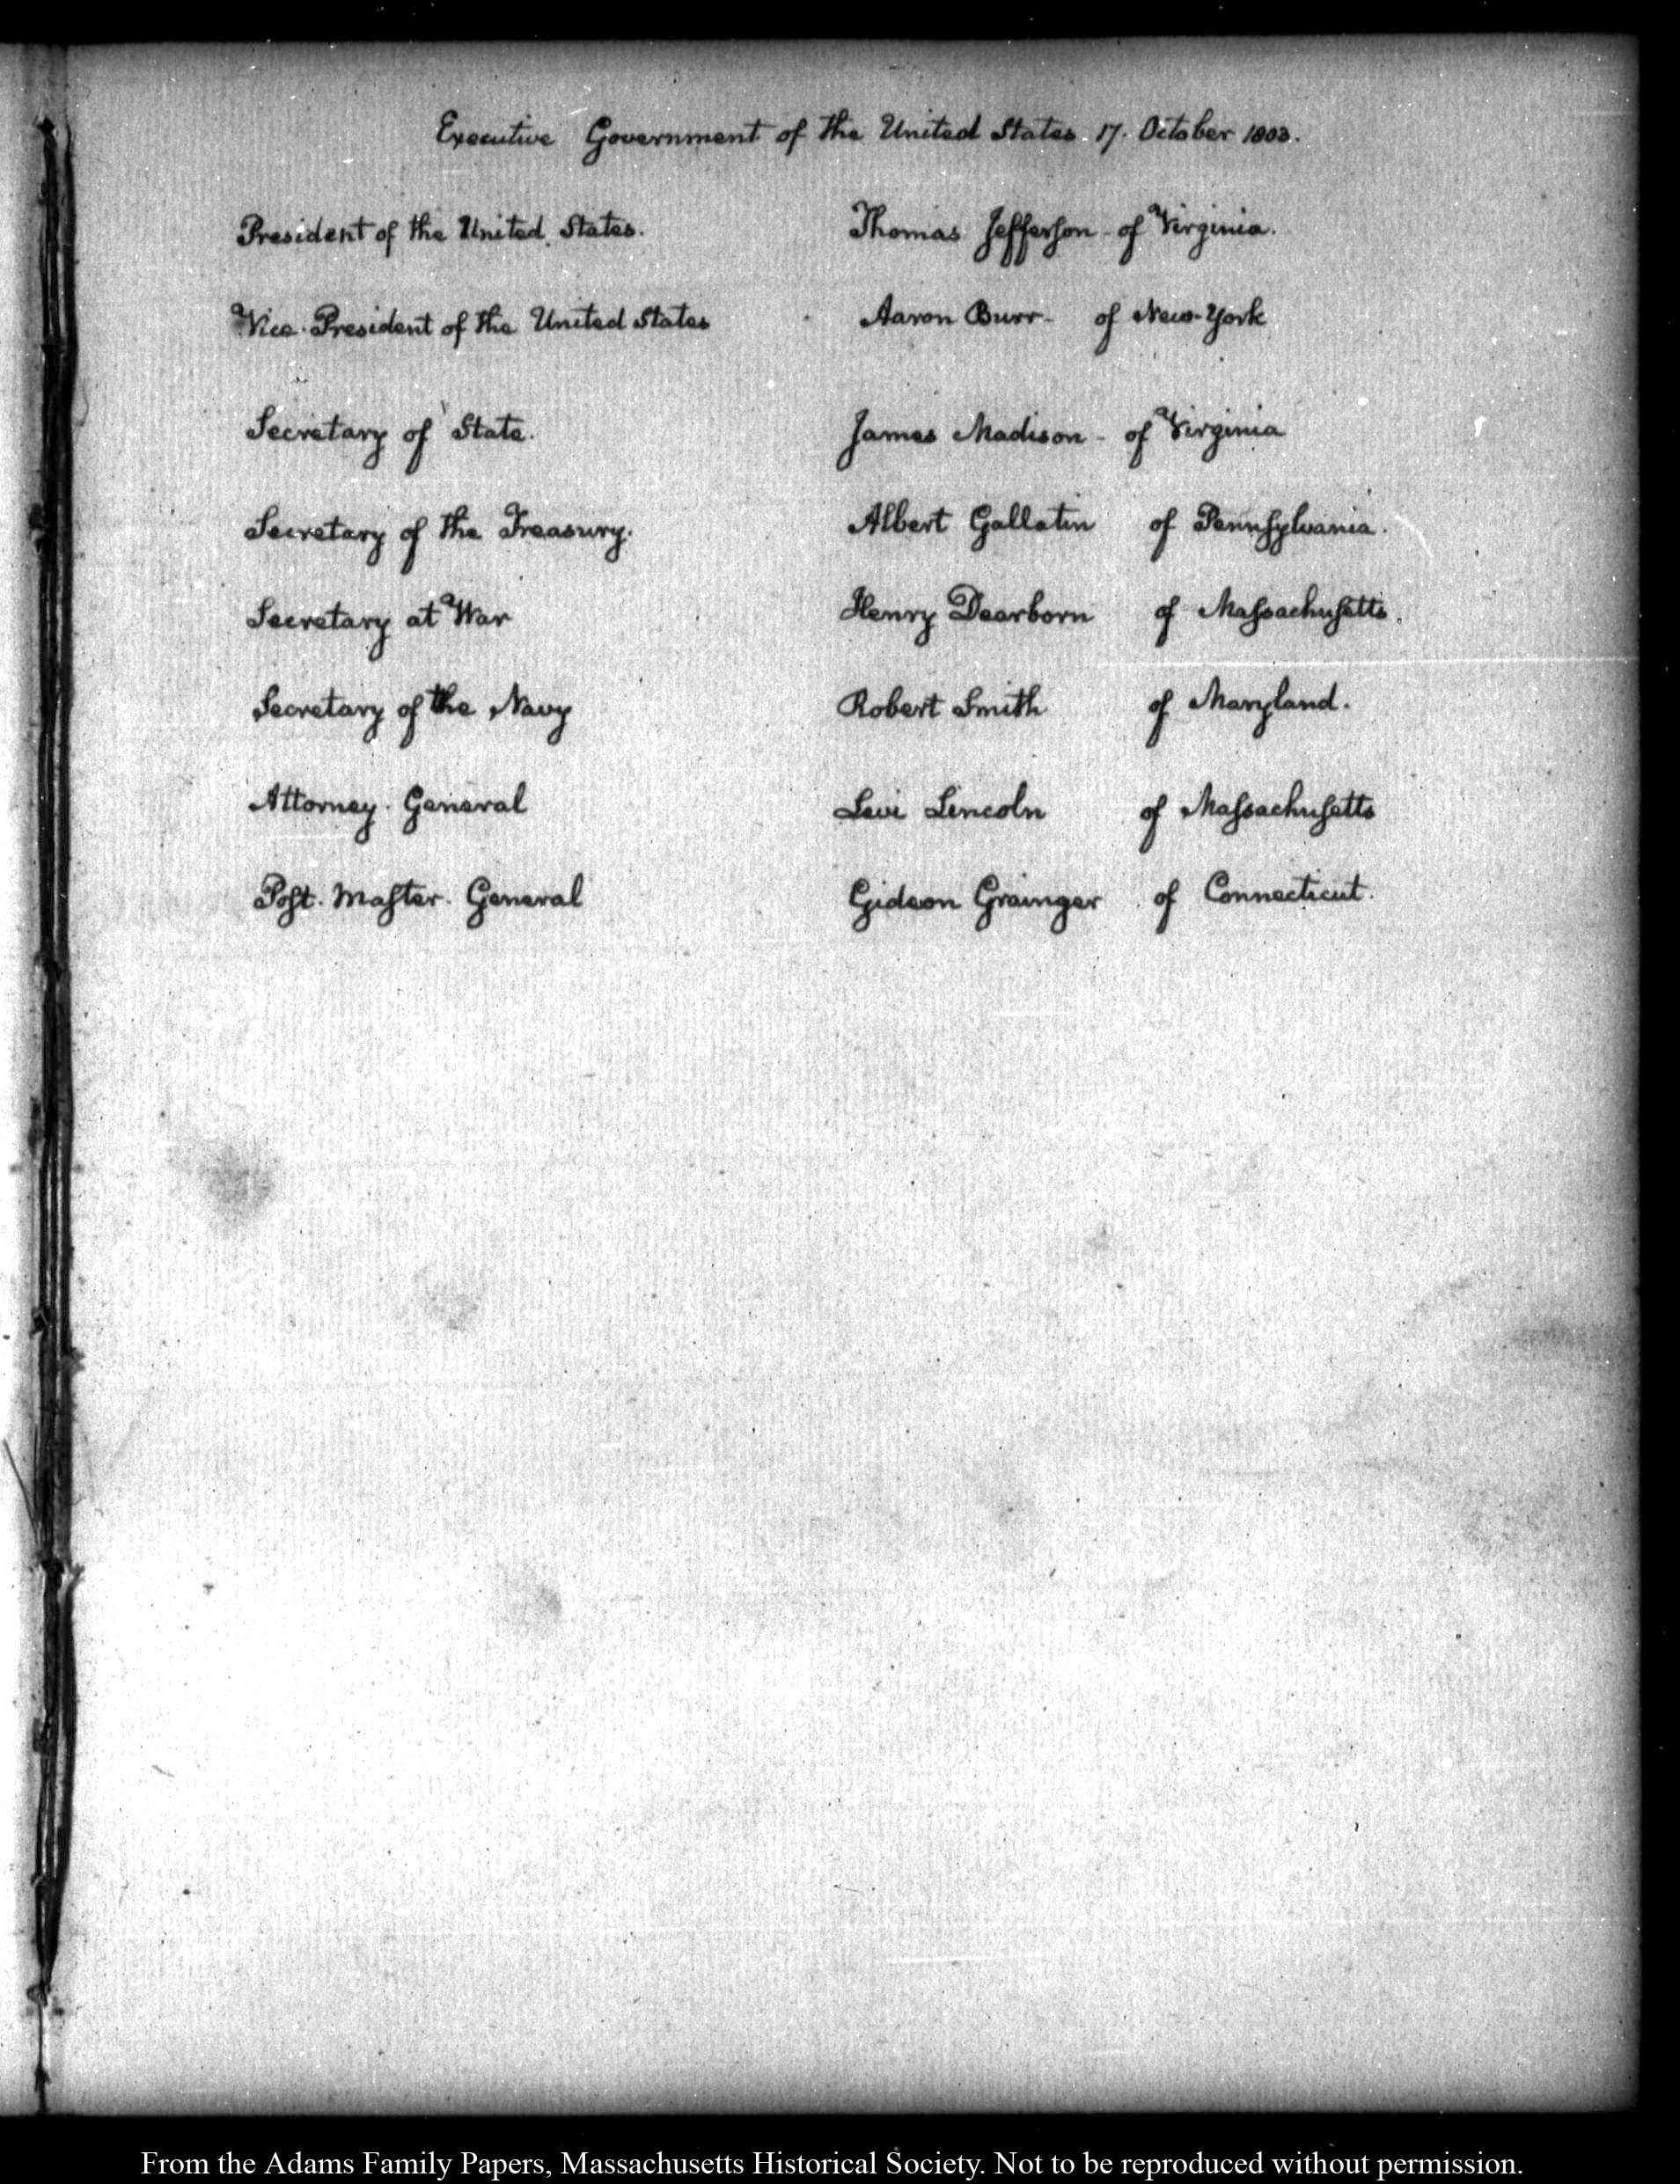 Executive Government of the United States. 17. October 1803.
President of the United States. Thomas Jefferson - of Virginia.
Vice-President of the United States Aaron Burr - of New-York
Secretary of State. James Madison - of Virginia
Secretary of the Treasury. Albert Gallatin of Pennsylvania.
Secretary at War Henry Dearborn of Massachusetts.
Secretary of the Navy Robert Smith of Maryland.
Attorney-General Levi Lincoln of Massachusetts
Post-Master-General Gideon Grainger of Connecticut.
From the Adams Family Papers, Massachusetts Historical Society. Not to be reproduced without permission.